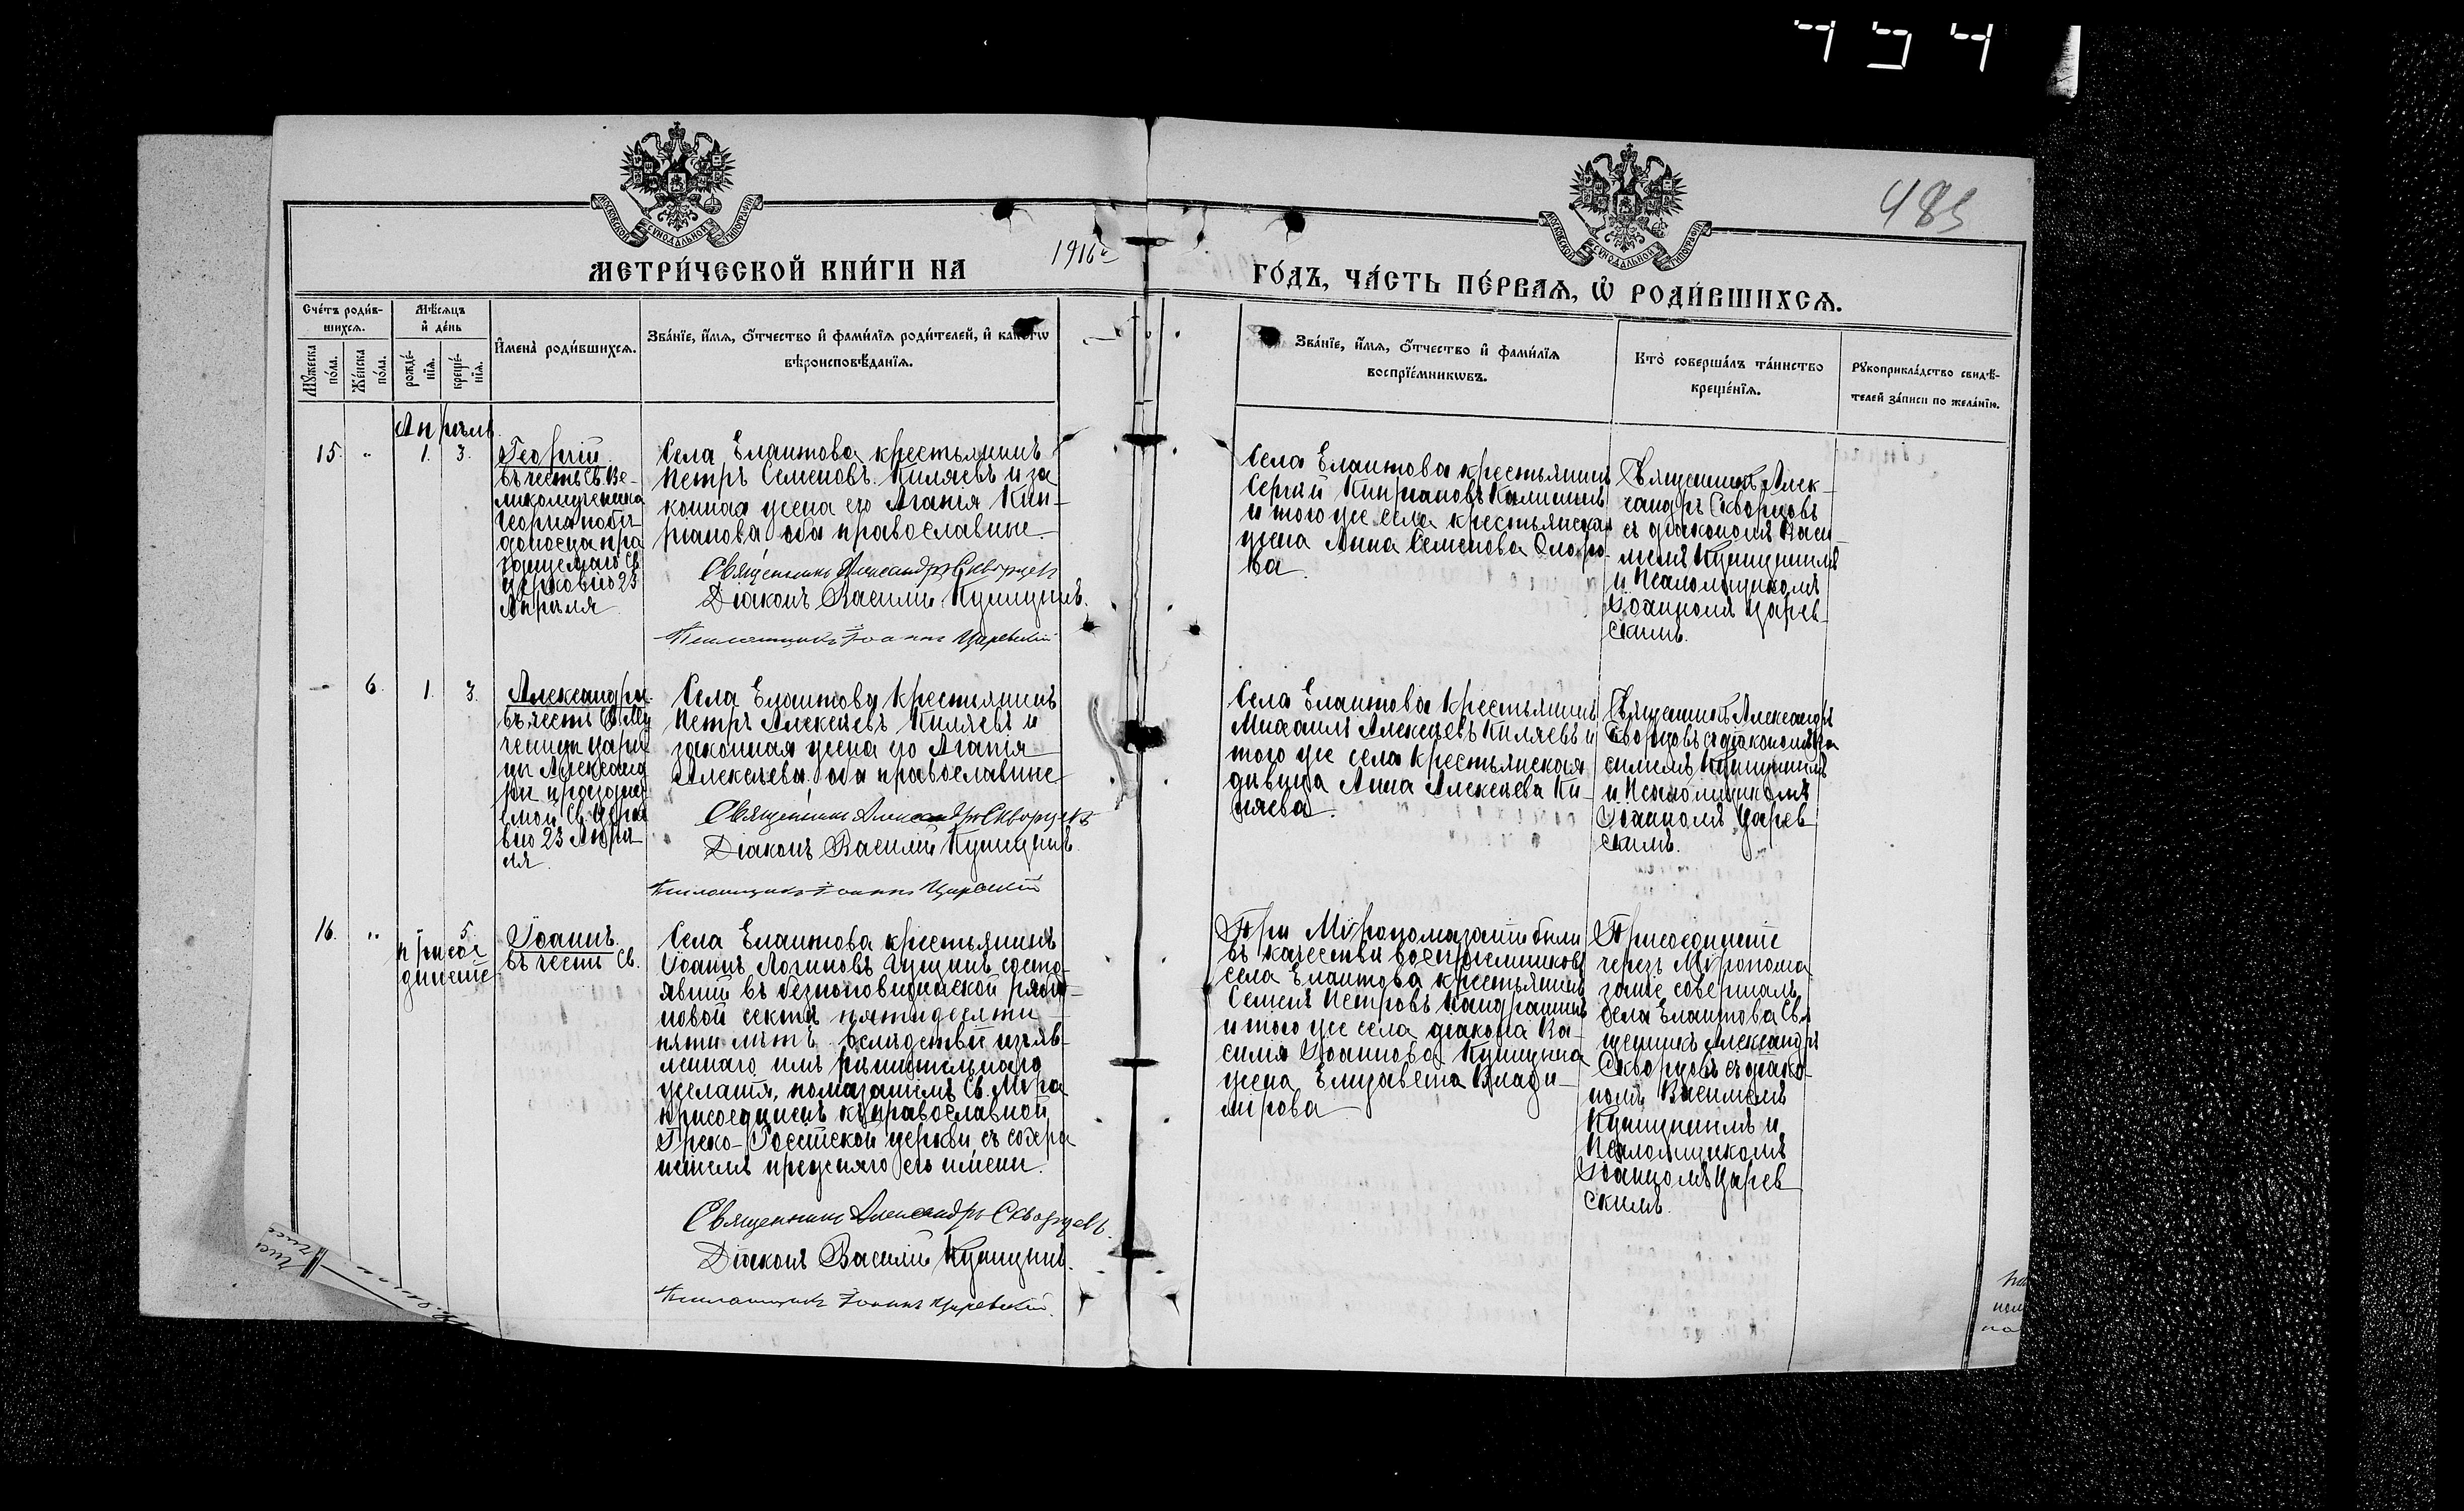 434
485
МОСКОВСКОЙ СѴНОДАЛЬНОЙ ТИПОГРАФІИ
МОСКОВСКОЙ СѴНОДАЛЬНОЙ ТИПОГРАФІИ
МЕТРИ́ЧЕСКОЙ КНИ́ГИ НА 1916й ГО́ДЪ, ЧА́СТЬ ПЕ́РВАѦ, Ѿ РОДИ́ВШИХСѦ.
Сче́тъ роди́в-
шихсѧ.
Мꙋ́жеска по́ла.
Же́нска по́ла.
Мѣ́сяцъ
и҆ де́нь
рожде́-
нїѧ.
креще́-
нїѧ.
И҆мена̀ роди́вшихсѧ.
Зва́нїе, и҆́мѧ, ѻ҆́тчество и҆ фами́лїѧ роди́телей, и҆ како́гѡ
вѣроисповѣ́данїѧ.
Зва́нїе, и҆́мѧ, ѻ҆́тчество и҆ фами́лїѧ
воспрїе́мникѡвъ.
Кто̀ соверша́лъ та́инство
креще́нїѧ.
Рꙋкоприкла́дство свидѣ́-
телей за́писи по жела́нїю.
Апрѣль
15. " 1. 3.
Георгій
въ честь Св. Ве-
ликомученика
Георгія побѣ-
доносца пра
зднуемаго Св
церковію 23
Апрѣля
Села Елаитова крестьянинъ
Петръ Семеновъ Киляевъ и за
конная жена его Агапія Кип-
ріанова оба православные.
Священникъ Александръ Скворцевъ
Діаконъ Василій Куницынъ.
Псаломщикъ Іоаннъ Царевскій
Села Елаитова крестьянинъ
Сергѣй Кипріановъ
и того же села крестьянская
жена Анна Семенова
ва.
Священникъ Алек-
сандръ Скворцовъ
съ діакономъ Васи-
ліемъ Куницынымъ
и Псаломщикомъ
Іоанномъ Царев-
скимъ.
— 6 1. 3.
Александра
въ честь Св. Му
ченицы цари
цы Александ
ры празднуе
емой Св. Церко
вію 23 Апрѣ
ля.
Села Елаитова крестьянинъ
Петръ Алексѣевъ Киляевъ и
законная жена его Агапія
Алексѣева оба православные
Священникъ Александръ Скворцевъ
Діаконъ Василій Куницынъ
Псаломщикъ Іоаннъ Царевскій
Села Елаитова крестьянинъ
Михаилъ Алексѣевъ Киляевъ и
того же села крестьянская
дѣвица Анна Алексѣева Ки-
ляева.
Священникъ Александръ
Скворцовъ съ діакономъ Ва
силіемъ Куницынымъ
и Псаломщикомъ
Іоанномъ Царев
скимъ.
16. " 5.
присое
диненіе
Іоаннъ
въ честь Св.
Села Елаитова крестьянинъ
Іоаннъ Логиновъ состо-
явшій въ безпоповщинской
новой сектѣ пятидесяти
пяти лѣтъ вслѣдствіе изъяв-
леннаго имъ рѣшительнаго
желанія, помазаніемъ Св. Мѵра
присоединенъ къ православной
Греко-Россійской церкви съ сохра
неніемъ прежняго его имени.
Священникъ Александръ Скворцевъ.
Діаконъ Василій Куницынъ.
Псаломщикъ Іоаннъ Царевскій.
При Мѵропомазаніи были
въ качествѣ воспріемниковъ
села Елаитова крестьянинъ
Семенъ Петровъ
и того же села діакона Ва-
силія Іоаннова Куницына
жена Елизавета Влади-
мірова
Присоединеніе
черезъ Мѵропома
заніе совершалъ
села Елаитова Свя
щенникъ Александръ
Скворцовъ съ діако-
номъ Василіемъ
Куницынымъ и
Псаломщикомъ
Іоанномъ Царев
скимъ.